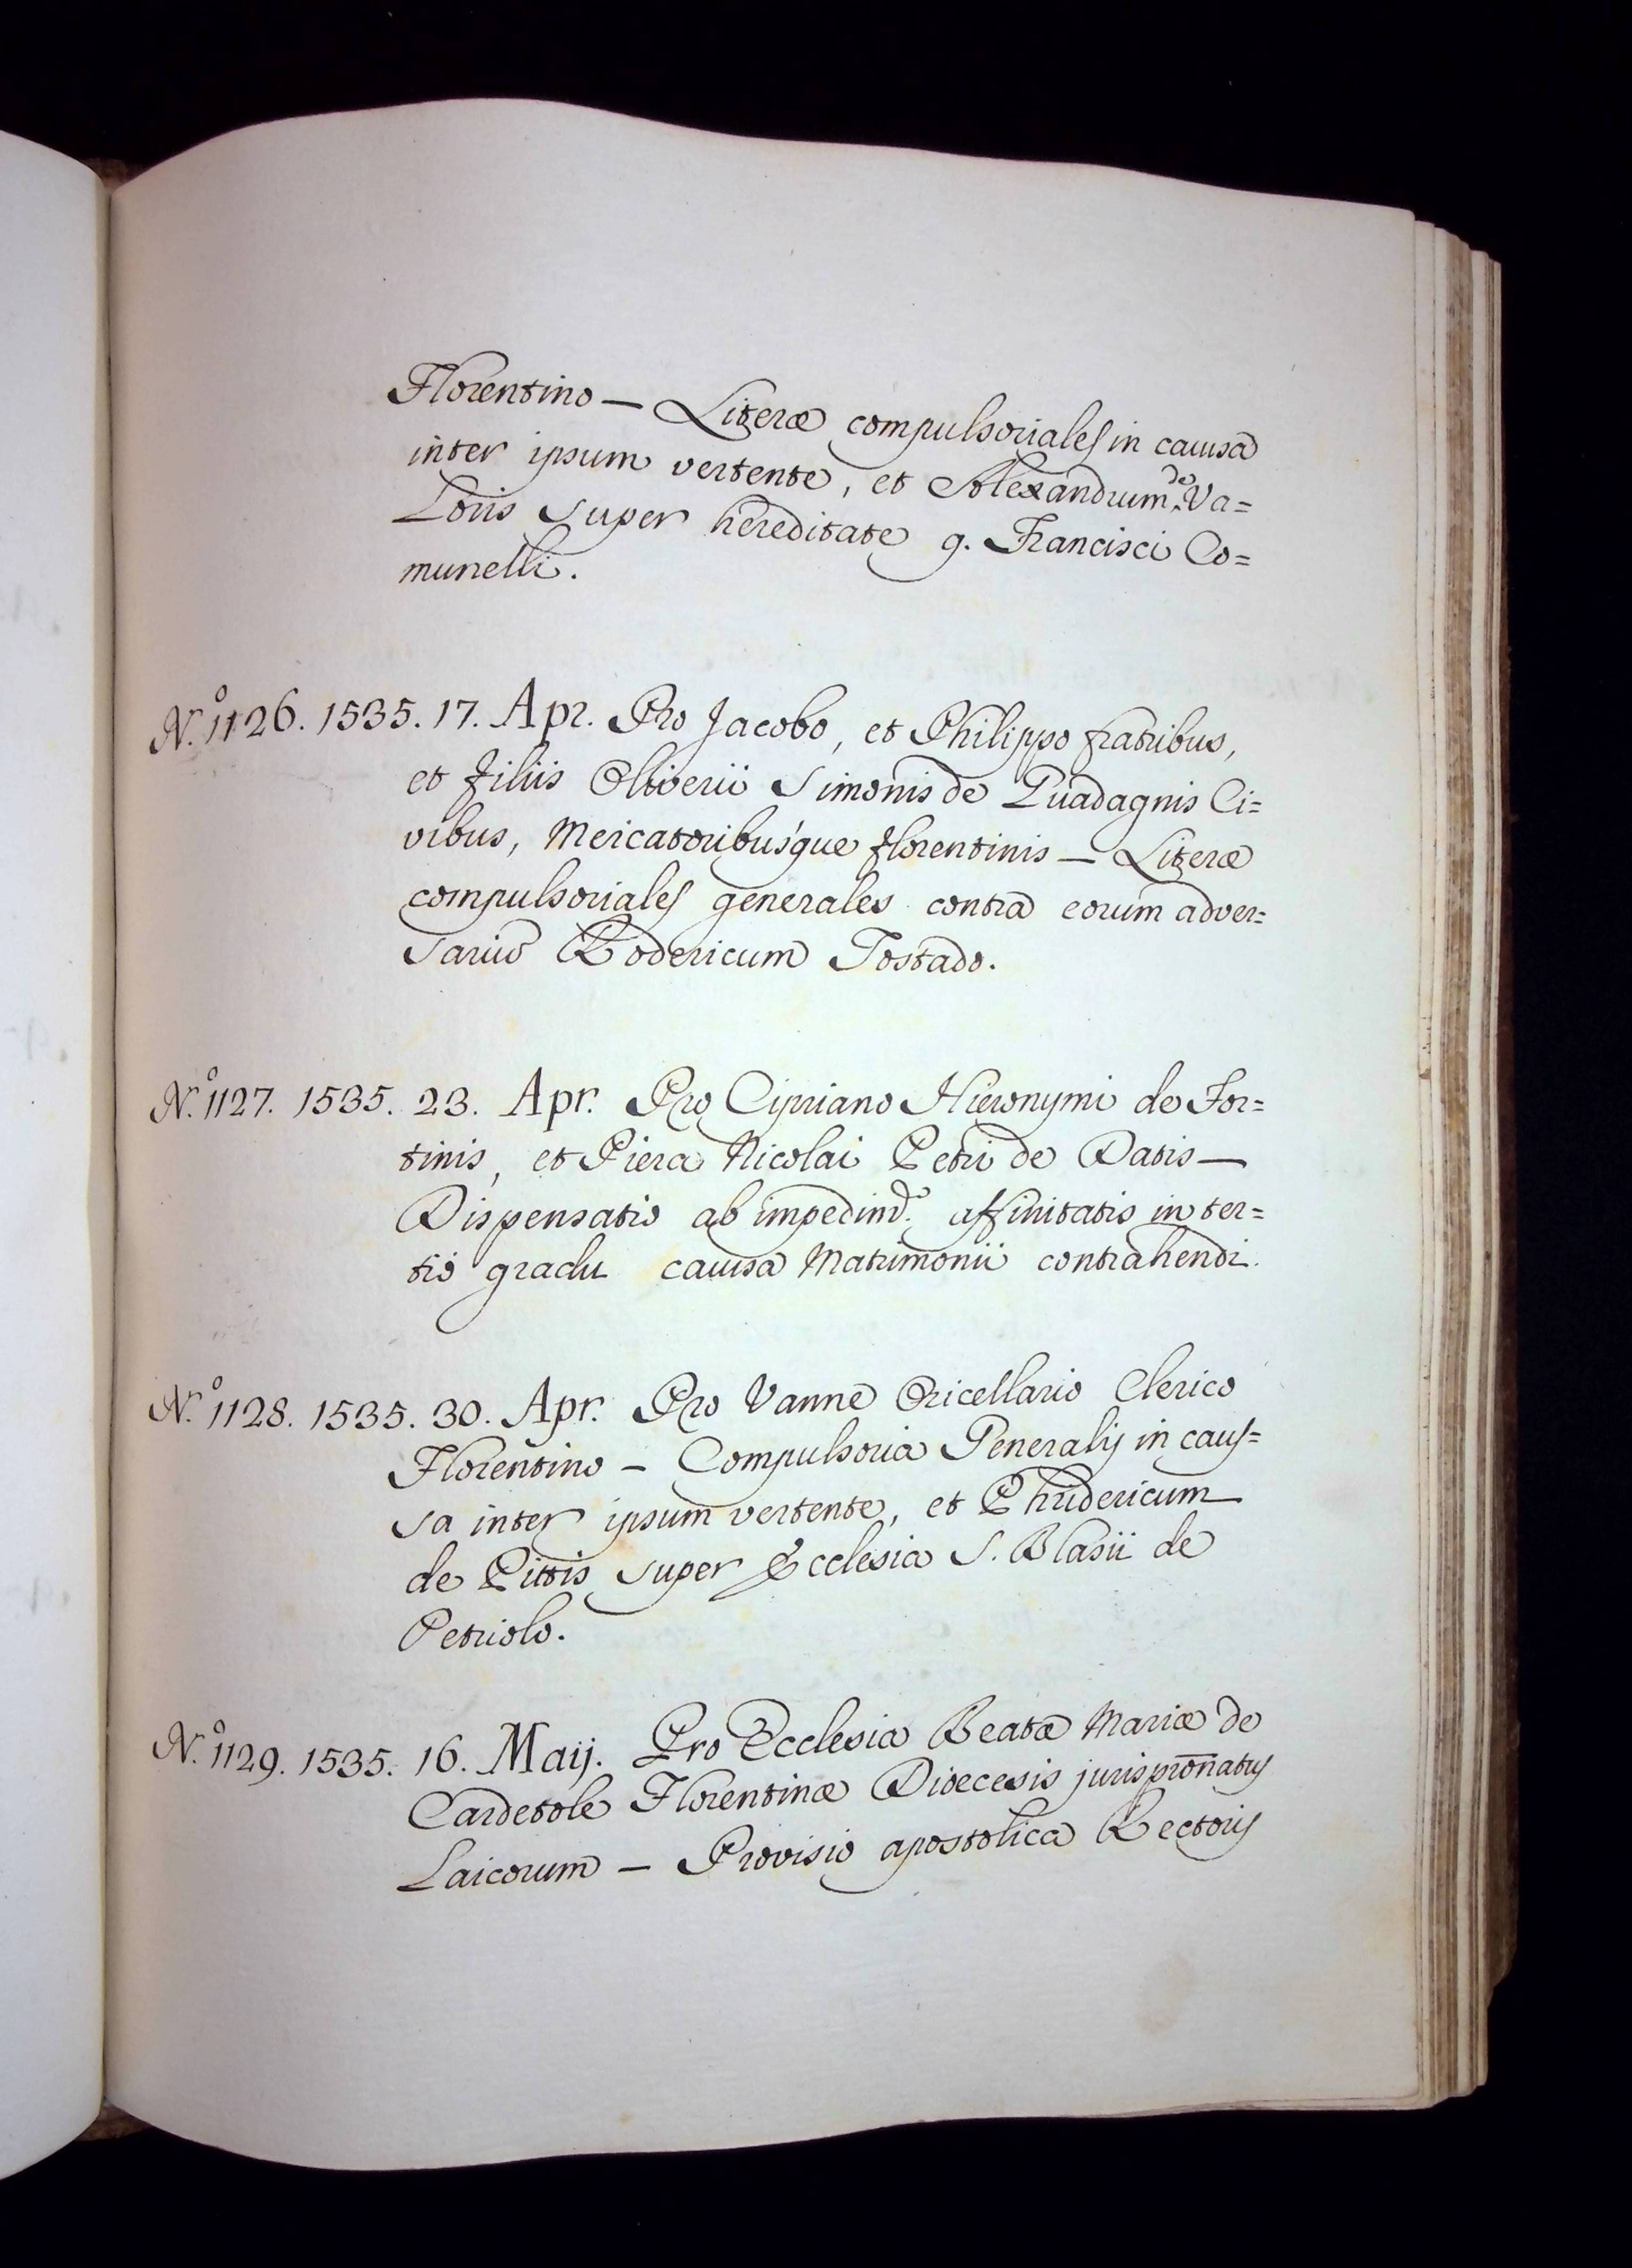 Florentino — Literæ compulsoriales in causa
inter ipsum vertente, et Alexandrum de Va=
Loris super hereditate q. Francisci Co=
munelli.
N.º 1126. 1535. 17. Apr. Pro Jacobo, et Philippo fratribus,
et filiis Oliverii Simonis de Guadagnis Ci=
vibus, Mercatoribusque florentinis — Literæ
compulsoriales generales contra eorum adver=
sariũ Rodericum Tostado.
N.º 1127. 1535. 23. Apr. Pro Cipriano Hieronymi de For=
tinis, et Piera Nicolai Petri de Datis —
Dispensatio ab impedim.º affinitatis in ter=
tio gradu causa Matrimonii contrahendi.
N.º 1128. 1535. 30. Apr. Pro Vanne Oricellario Clerico
Florentino — Compulsoria Generalis in caus=
sa inter ipsum vertente, et Phridericum
de Pittis super Ecclesia S. Blasii de
Petriolo.
N.º 1129. 1535. 16. Maij. Pro Ecclesia Beatæ Mariæ de
Cardetole Florentinæ Dioecesis jurispronatus
Laicorum — Provisio apostolica Rectoris